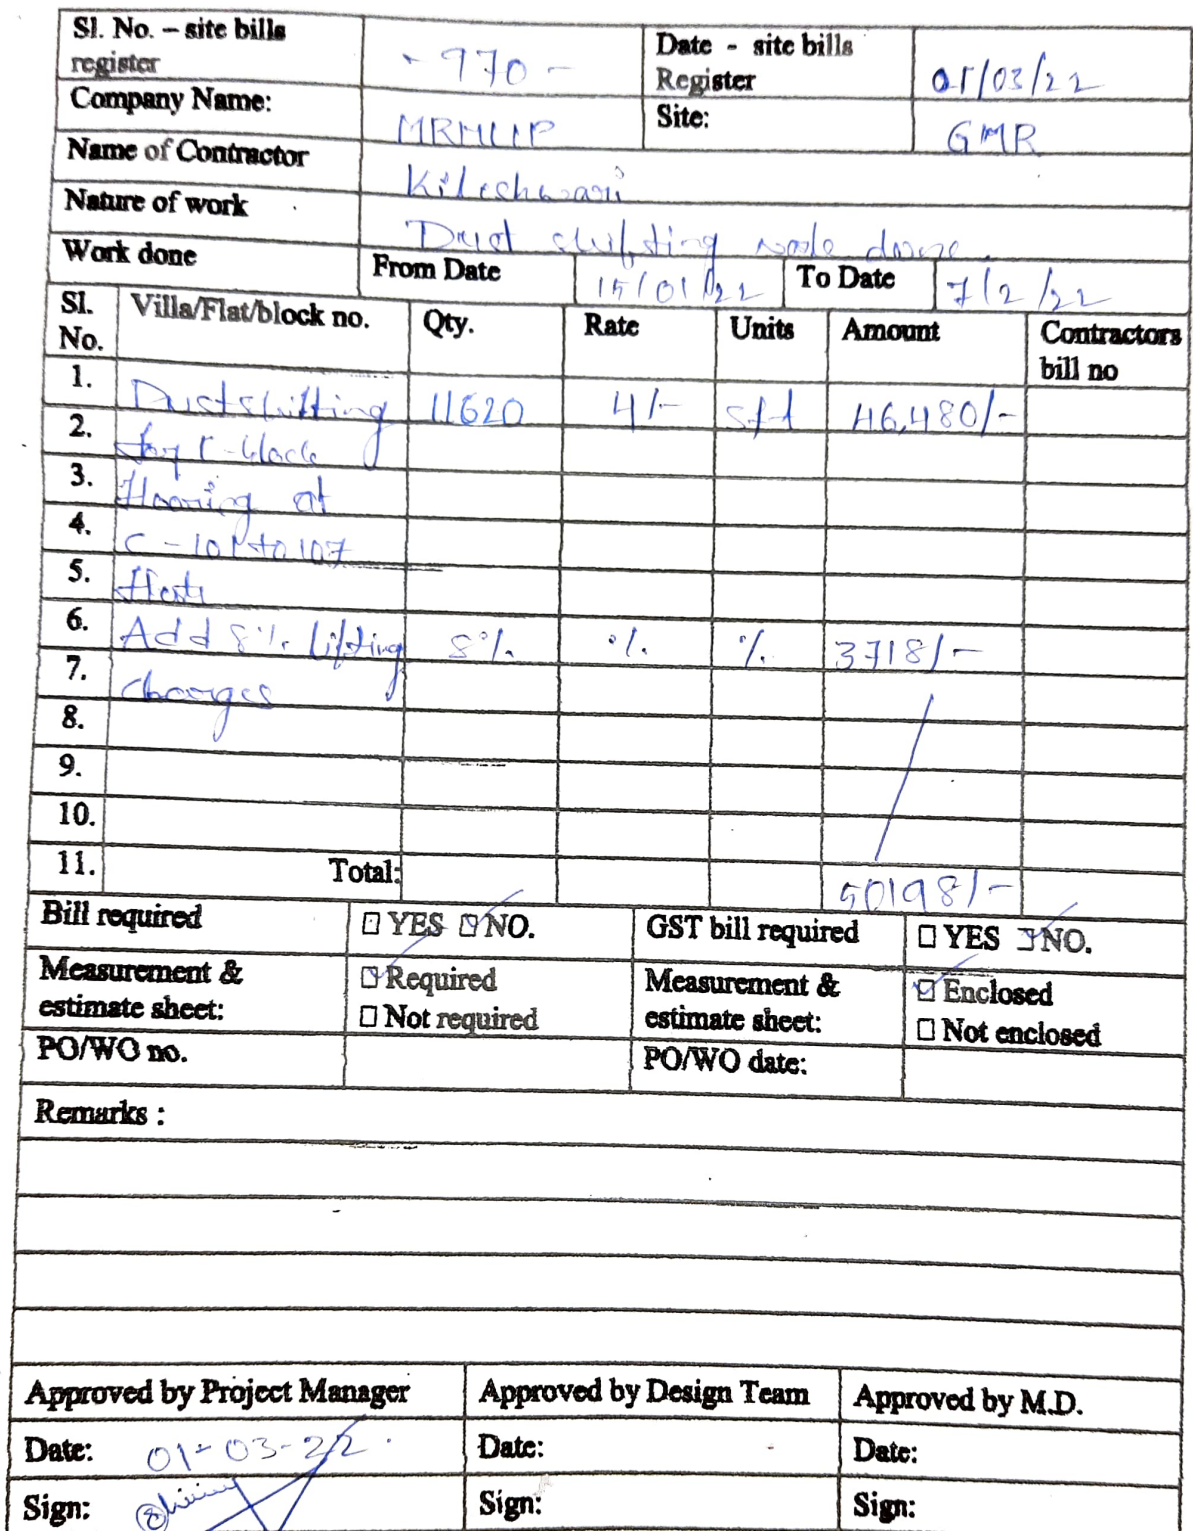 Sl. No. – site bills register - 970 - Date - site bills Register 01/03/22
Company Name: MRMLLP Site: GMR
Name of Contractor Kileshwari
Nature of work Dust shifting work done.
Work done From Date 15/01/22 To Date 7/2/22
Sl. No. Villa/Flat/block no. Qty. Rate Units Amount Contractors bill no
1. Dust shifting 11620 4/- sft 46,480/-
2. for C-block
3. flooring at
4. C-101 to 107
5. flats
6. Add 8% lifting 8% % % 3718/-
7. charges
8.
9.
10.
11. Total: 50198/-
Bill required YES NO. GST bill required YES NO.
Measurement & estimate sheet: Required Not required Measurement & estimate sheet: Enclosed Not enclosed
PO/WO no. PO/WO date:
Remarks :
Approved by Project Manager Approved by Design Team Approved by M.D.
Date: 01-03-22. Date: Date:
Sign: Sign: Sign: